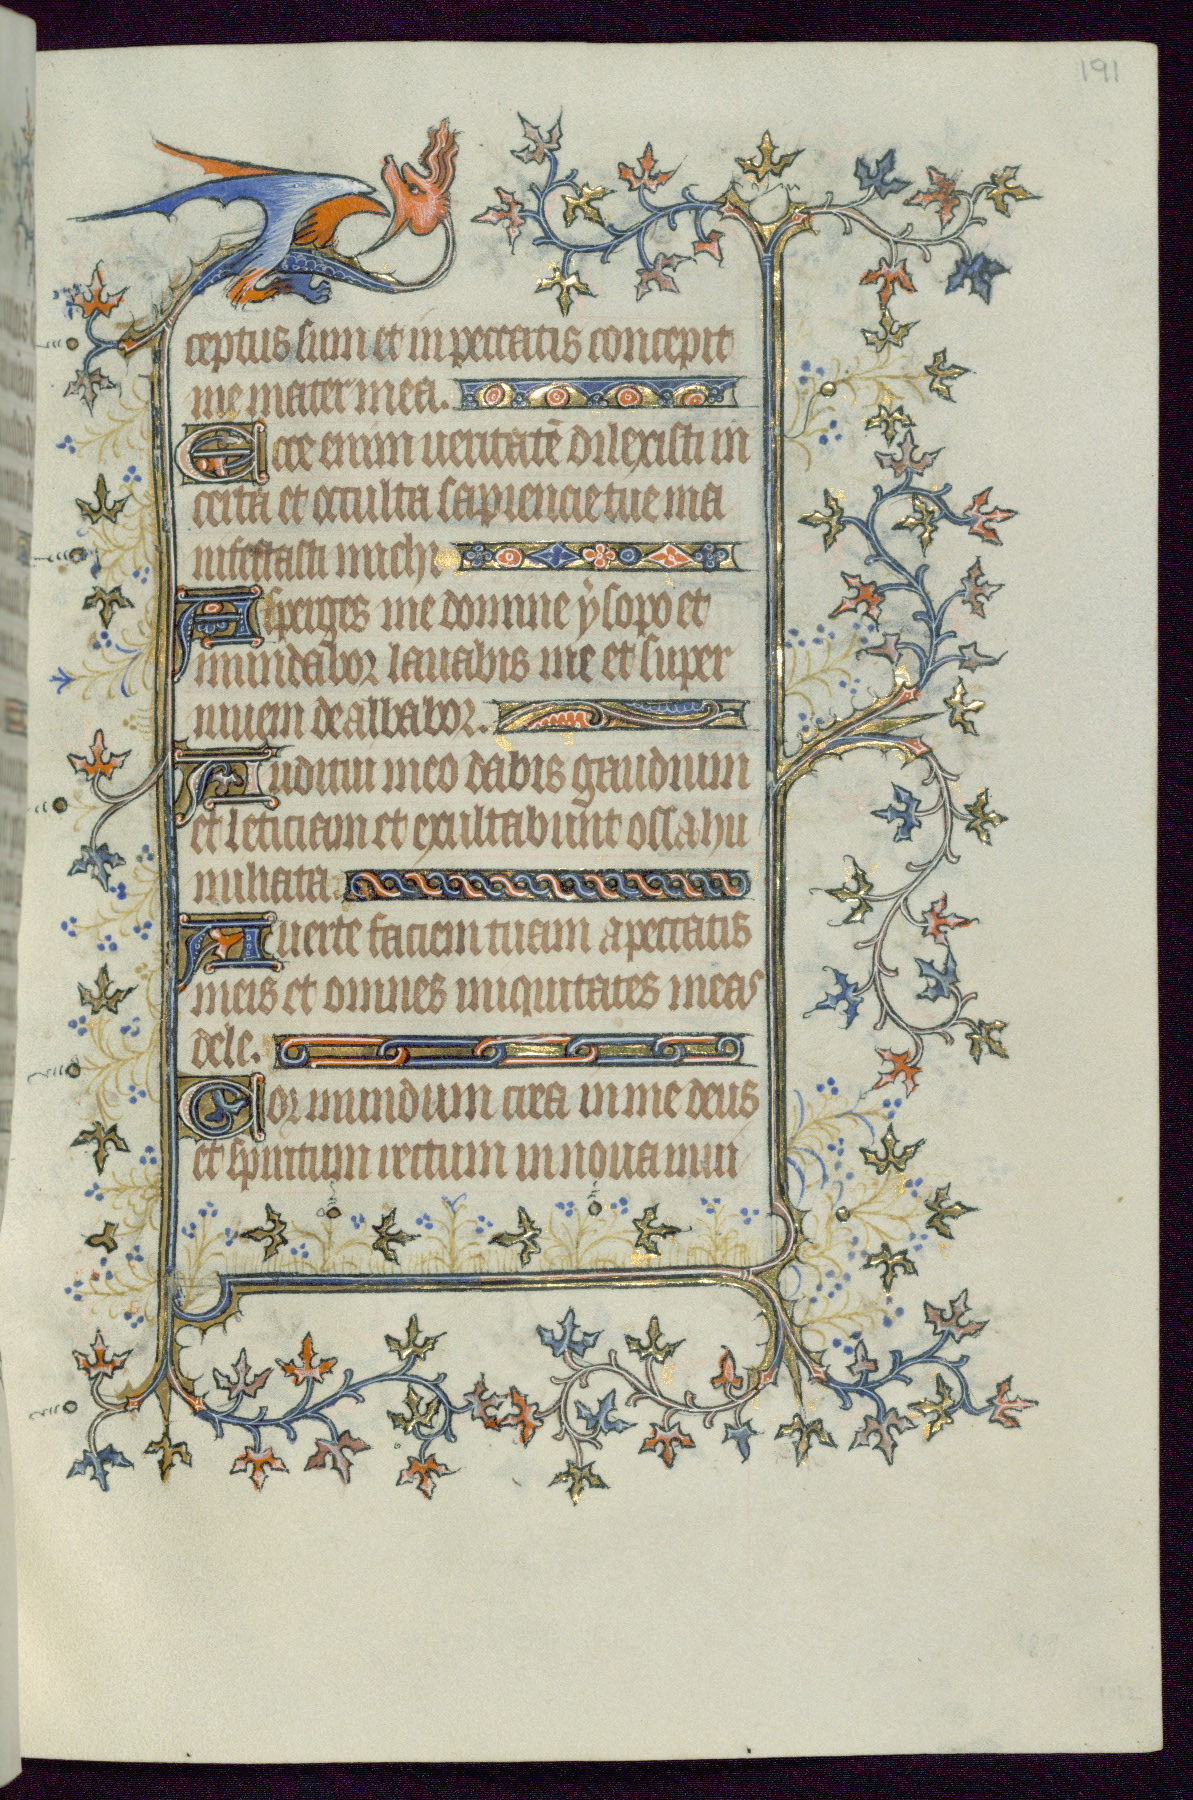 191
ceptus sum et in peccatis concepit
me mater mea.
Ecce enim ueritatē dilexisti in
certa et occulta sapiencie tue ma
nifestasti michi
Asperges me domine ysopo et
mundabor lauabis me et super
niuem dealbabor.
Auditui meo dabis gaudium
et leticiam et exultabunt ossa hu
miliata.
Auerte faciem tuam a peccatis
meis et omnes iniquitates meas
dele.
Cor mundum crea in me deus
et spiritum rectum innoua in ui